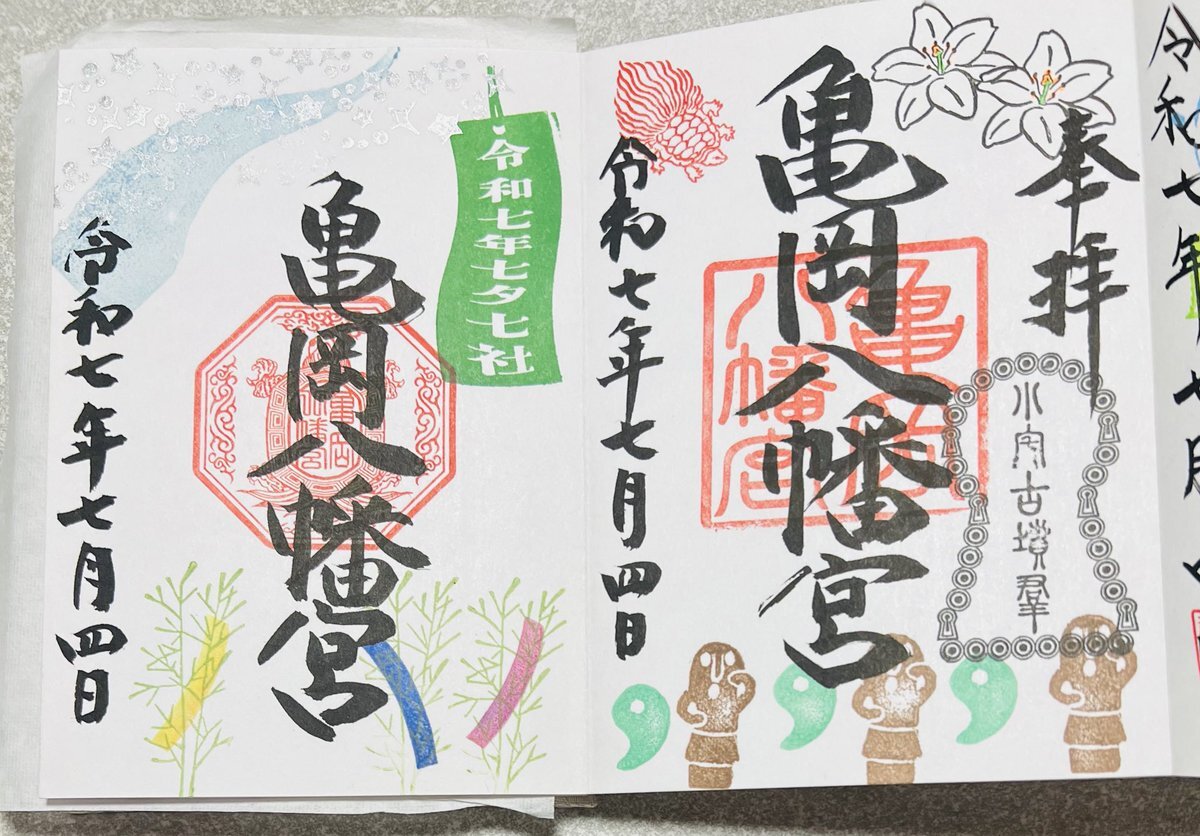 令和七年七月
奉拝
小宅古墳群
亀岡八幡宮
亀岡
八幡宮
令和七年七月四日
令和七年七夕七社
亀岡八幡宮
令和七年七月四日